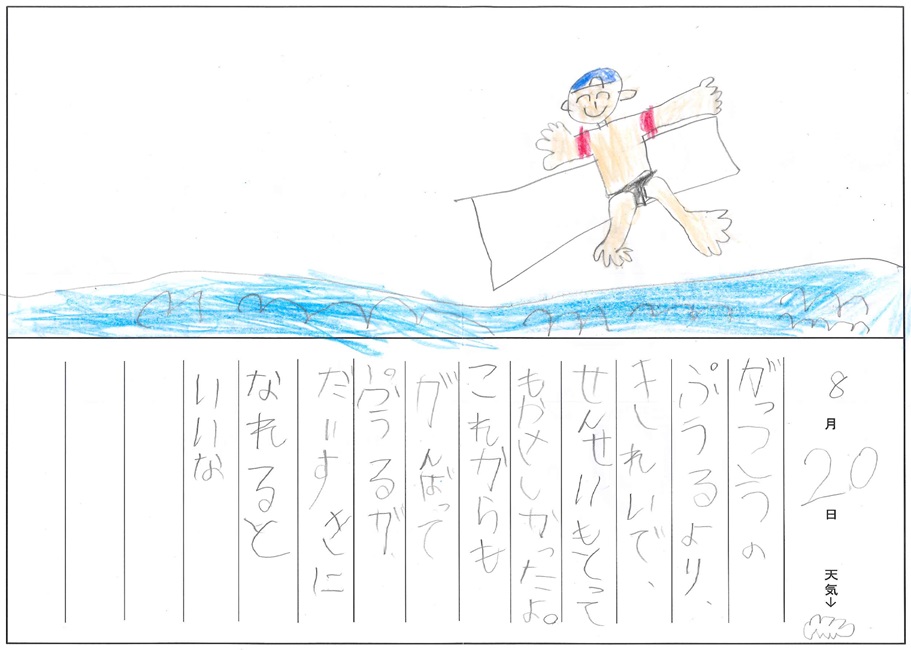 8月20日 天気↓
がっこうの
ぷうるより、
きれいで、
せんせいもとって
もやさしかったよ。
これからも
がんばって
ぷうるが、
だいすきに
なれると
いいな